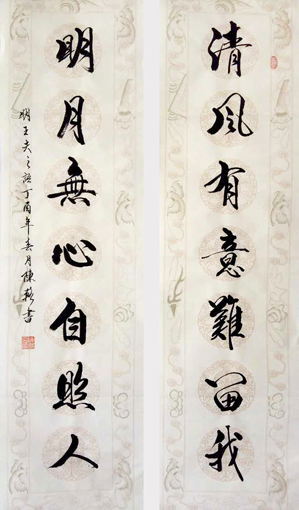 清風有意難留我
明月無心自照人
明王夫之語丁酉年春月陳
書